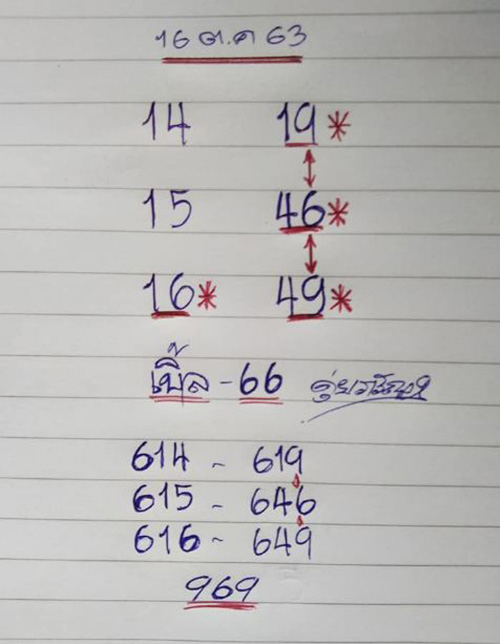 16 ต.ค 63
14 19*
15 46*
16* 49*
เบิ้ล - 66
614 - 619
615 - 646
616 - 649
969